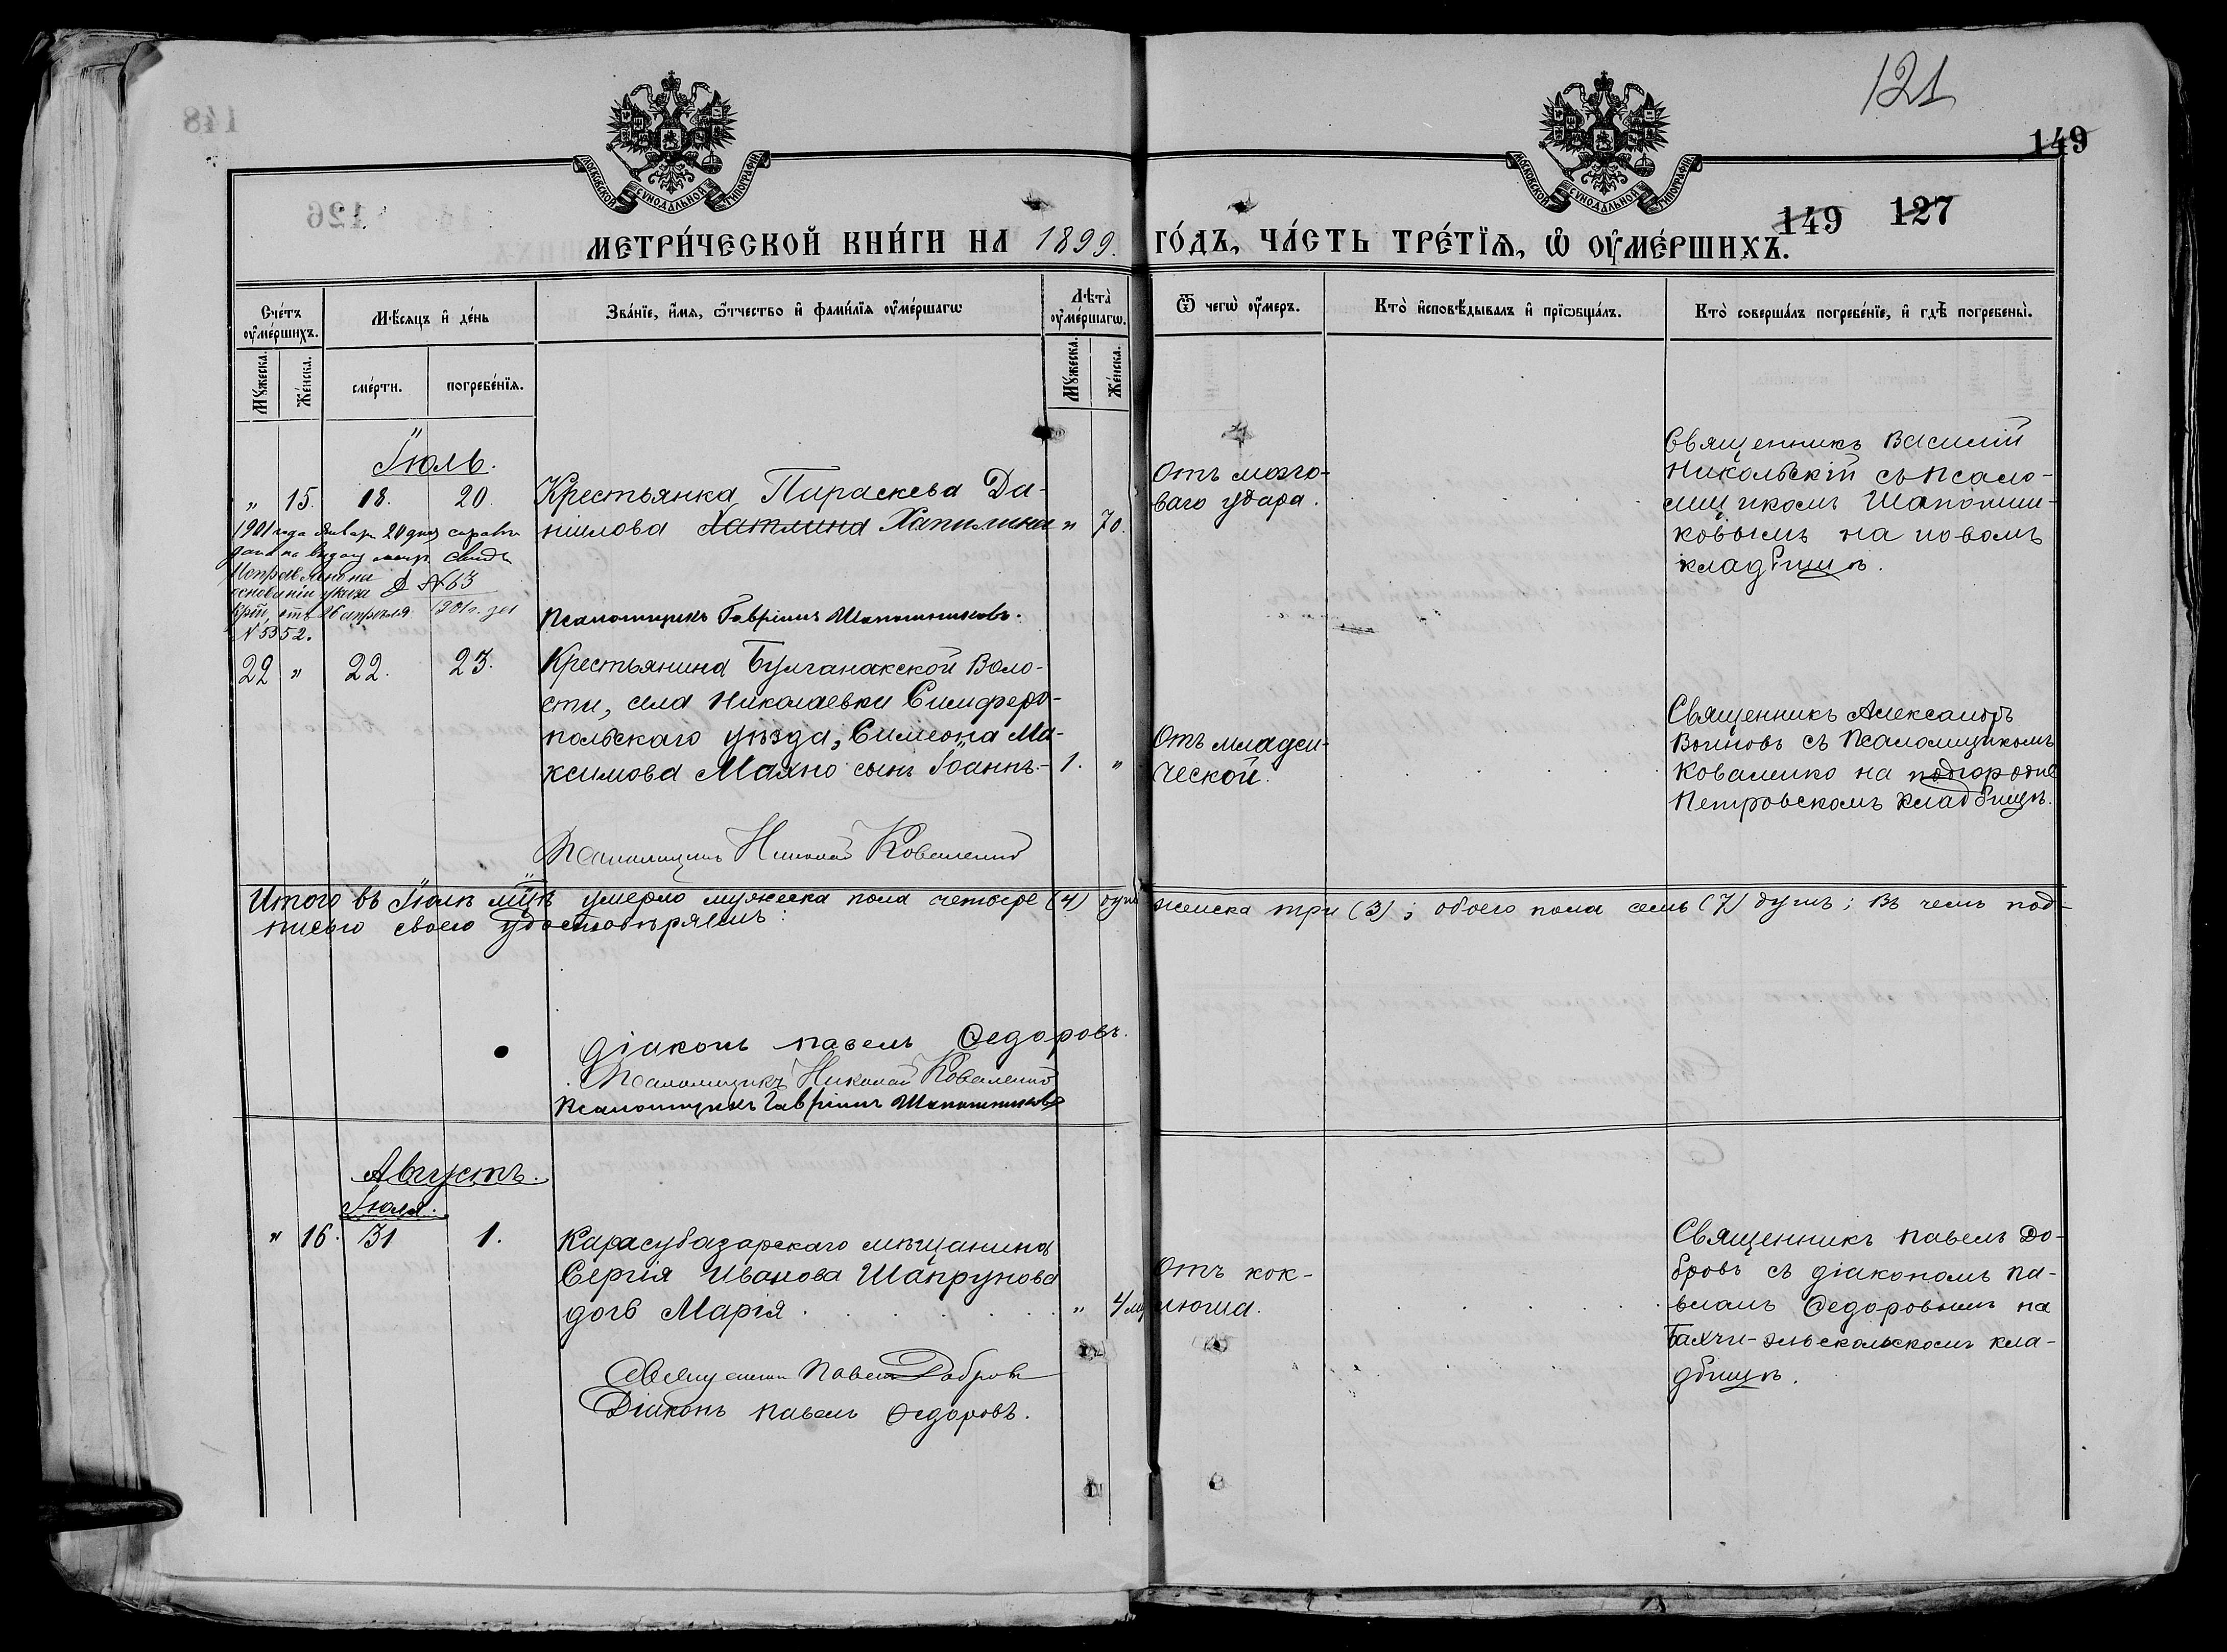 121
149
148
126
149 127
МОСКОВСКОЙ СѴНОДАЛЬНОЙ ТИПОГРАФІИ
МОСКОВСКОЙ СѴНОДАЛЬНОЙ ТИПОГРАФІИ
МЕТРИ́ЧЕСКОЙ КНИ́ГИ НА 1899. ГО́ДЪ, ЧА́СТЬ ТРЕ́ТЇѦ, Ѡ ОУ҆МЕ́РШИХЪ.
Сче́тъ оу҆ме́ршихъ.
Мѣ́сяцъ и҆ де́нь
Зва́нїе, и҆́мя, ѻ҆́тчество и҆ фами́лїя оу҆ме́ршагѡ
Лѣта̀ оу҆ме́ршагѡ.
Ѿ чегѡ̀ оу҆́меръ.
Кто̀ и҆сповѣ́дывалъ и҆ прїѡбща́лъ.
Кто̀ соверша́лъ погребе́нїе, и҆ гдѣ̀ погребены̀.
Мꙋ́жеска.
Же́нска.
сме́рти.
погребе́нїя.
Мꙋ́жеска.
Же́нска.
Іюль.
" 15. 18. 20.
Крестьянка Параскева Да-
нилова Хатлина Хапилина " 70.
Отъ мозго-
ваго удара.
Священникъ Василій
Никольскій съ псало-
мщикомъ Шапошни-
ковымъ на новомъ
кладбищѣ.
1901 года Января 20 дня справка
дана на выдачу метр. свид.
Исправлено на
основаніи указа № 63
отъ 26 апрѣля 1901 г. за
№ 5352.
Псаломщикъ Гавріилъ Шапошниковъ.
22 " 22. 23.
Крестьянина Булганакской Воло-
сти, села Николаевки Симферо-
польскаго уѣзда, Симеона Ма-
ксимова Маяно сынъ Іоаннъ. 1. "
Отъ младен-
ческой.
Священникъ Александръ
Воиновъ съ Псаломщикомъ
Коваленко на подгородне
Петровскомъ кладбищѣ.
Псаломщикъ Николай Коваленко
Итого въ Іюлѣ мцѣ умерло мужеска пола четыре (4) душ женска три (3); обоего пола семь (7) душъ; Въ чемъ под-
писью своею удостовѣряемъ:
Діаконъ Павелъ Ѳедоровъ.
Псаломщикъ Николай Коваленко
Псаломщикъ Гавріилъ Шапошниковъ
Августъ.
Іюля.
" 16. 31 1.
Карасубазарскаго мѣщанина
Сергія Иванова Шапрунова
дочь Марія " 4 мц
Отъ кок-
люша.
Священникъ Павелъ До-
бровъ съ діакономъ Па-
вломъ Ѳедоровымъ на
Бахчи-эльскомъ кла-
дбищѣ.
Священникъ Павелъ Добровъ
Діаконъ Павелъ Ѳедоровъ.